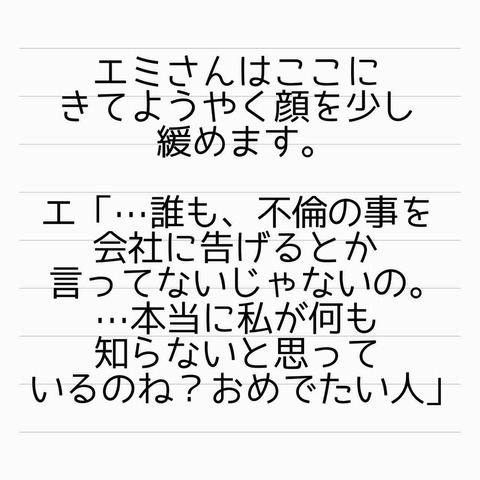 エミさんはここに
きてようやく顔を少し
緩めます。
エ「…誰も、不倫の事を
会社に告げるとか
言ってないじゃないの。
…本当に私が何も
知らないと思って
いるのね？おめでたい人」